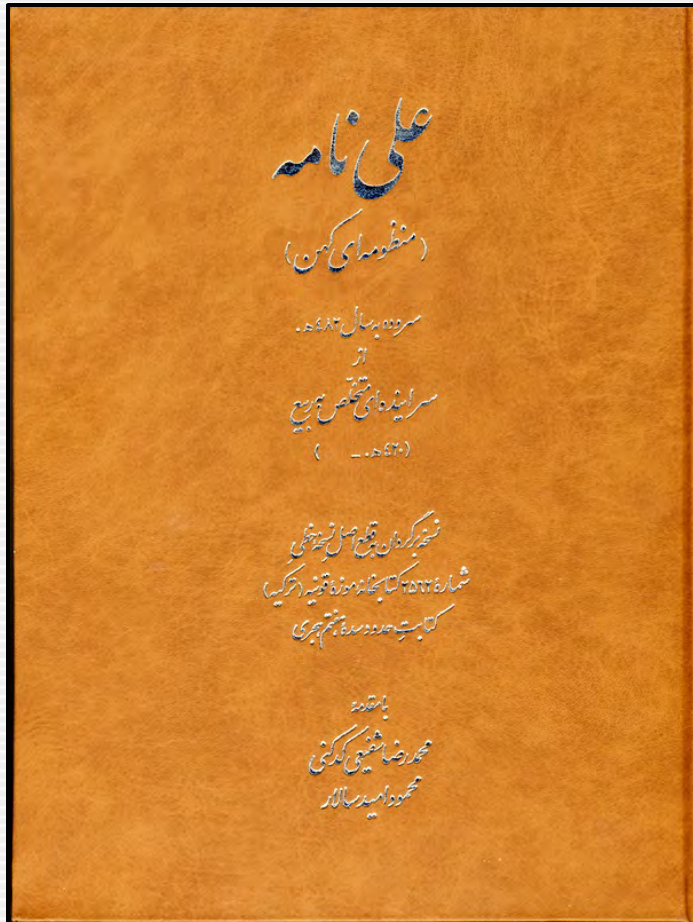 علی نامه
(منظومه‌ای کهن)
سروده به سال ۴۸۲ ه.
از
سراینده‌ای متخلّص به ربیع
(۴۲۰ ه. - )
نسخه برگردان به قطع اصل نسخهٔ خطیِ
شمارهٔ ۲۵۶۲ کتابخانه موزهٔ قونیه (ترکیه)
کتابتِ حدود سدهٔ هفتم هجری
با مقدمهٔ
محمدرضا شفیعی کدکنی
محمود امیدسالار